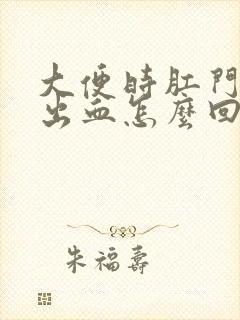 大便時肛門
出血怎麼回
朱福壽